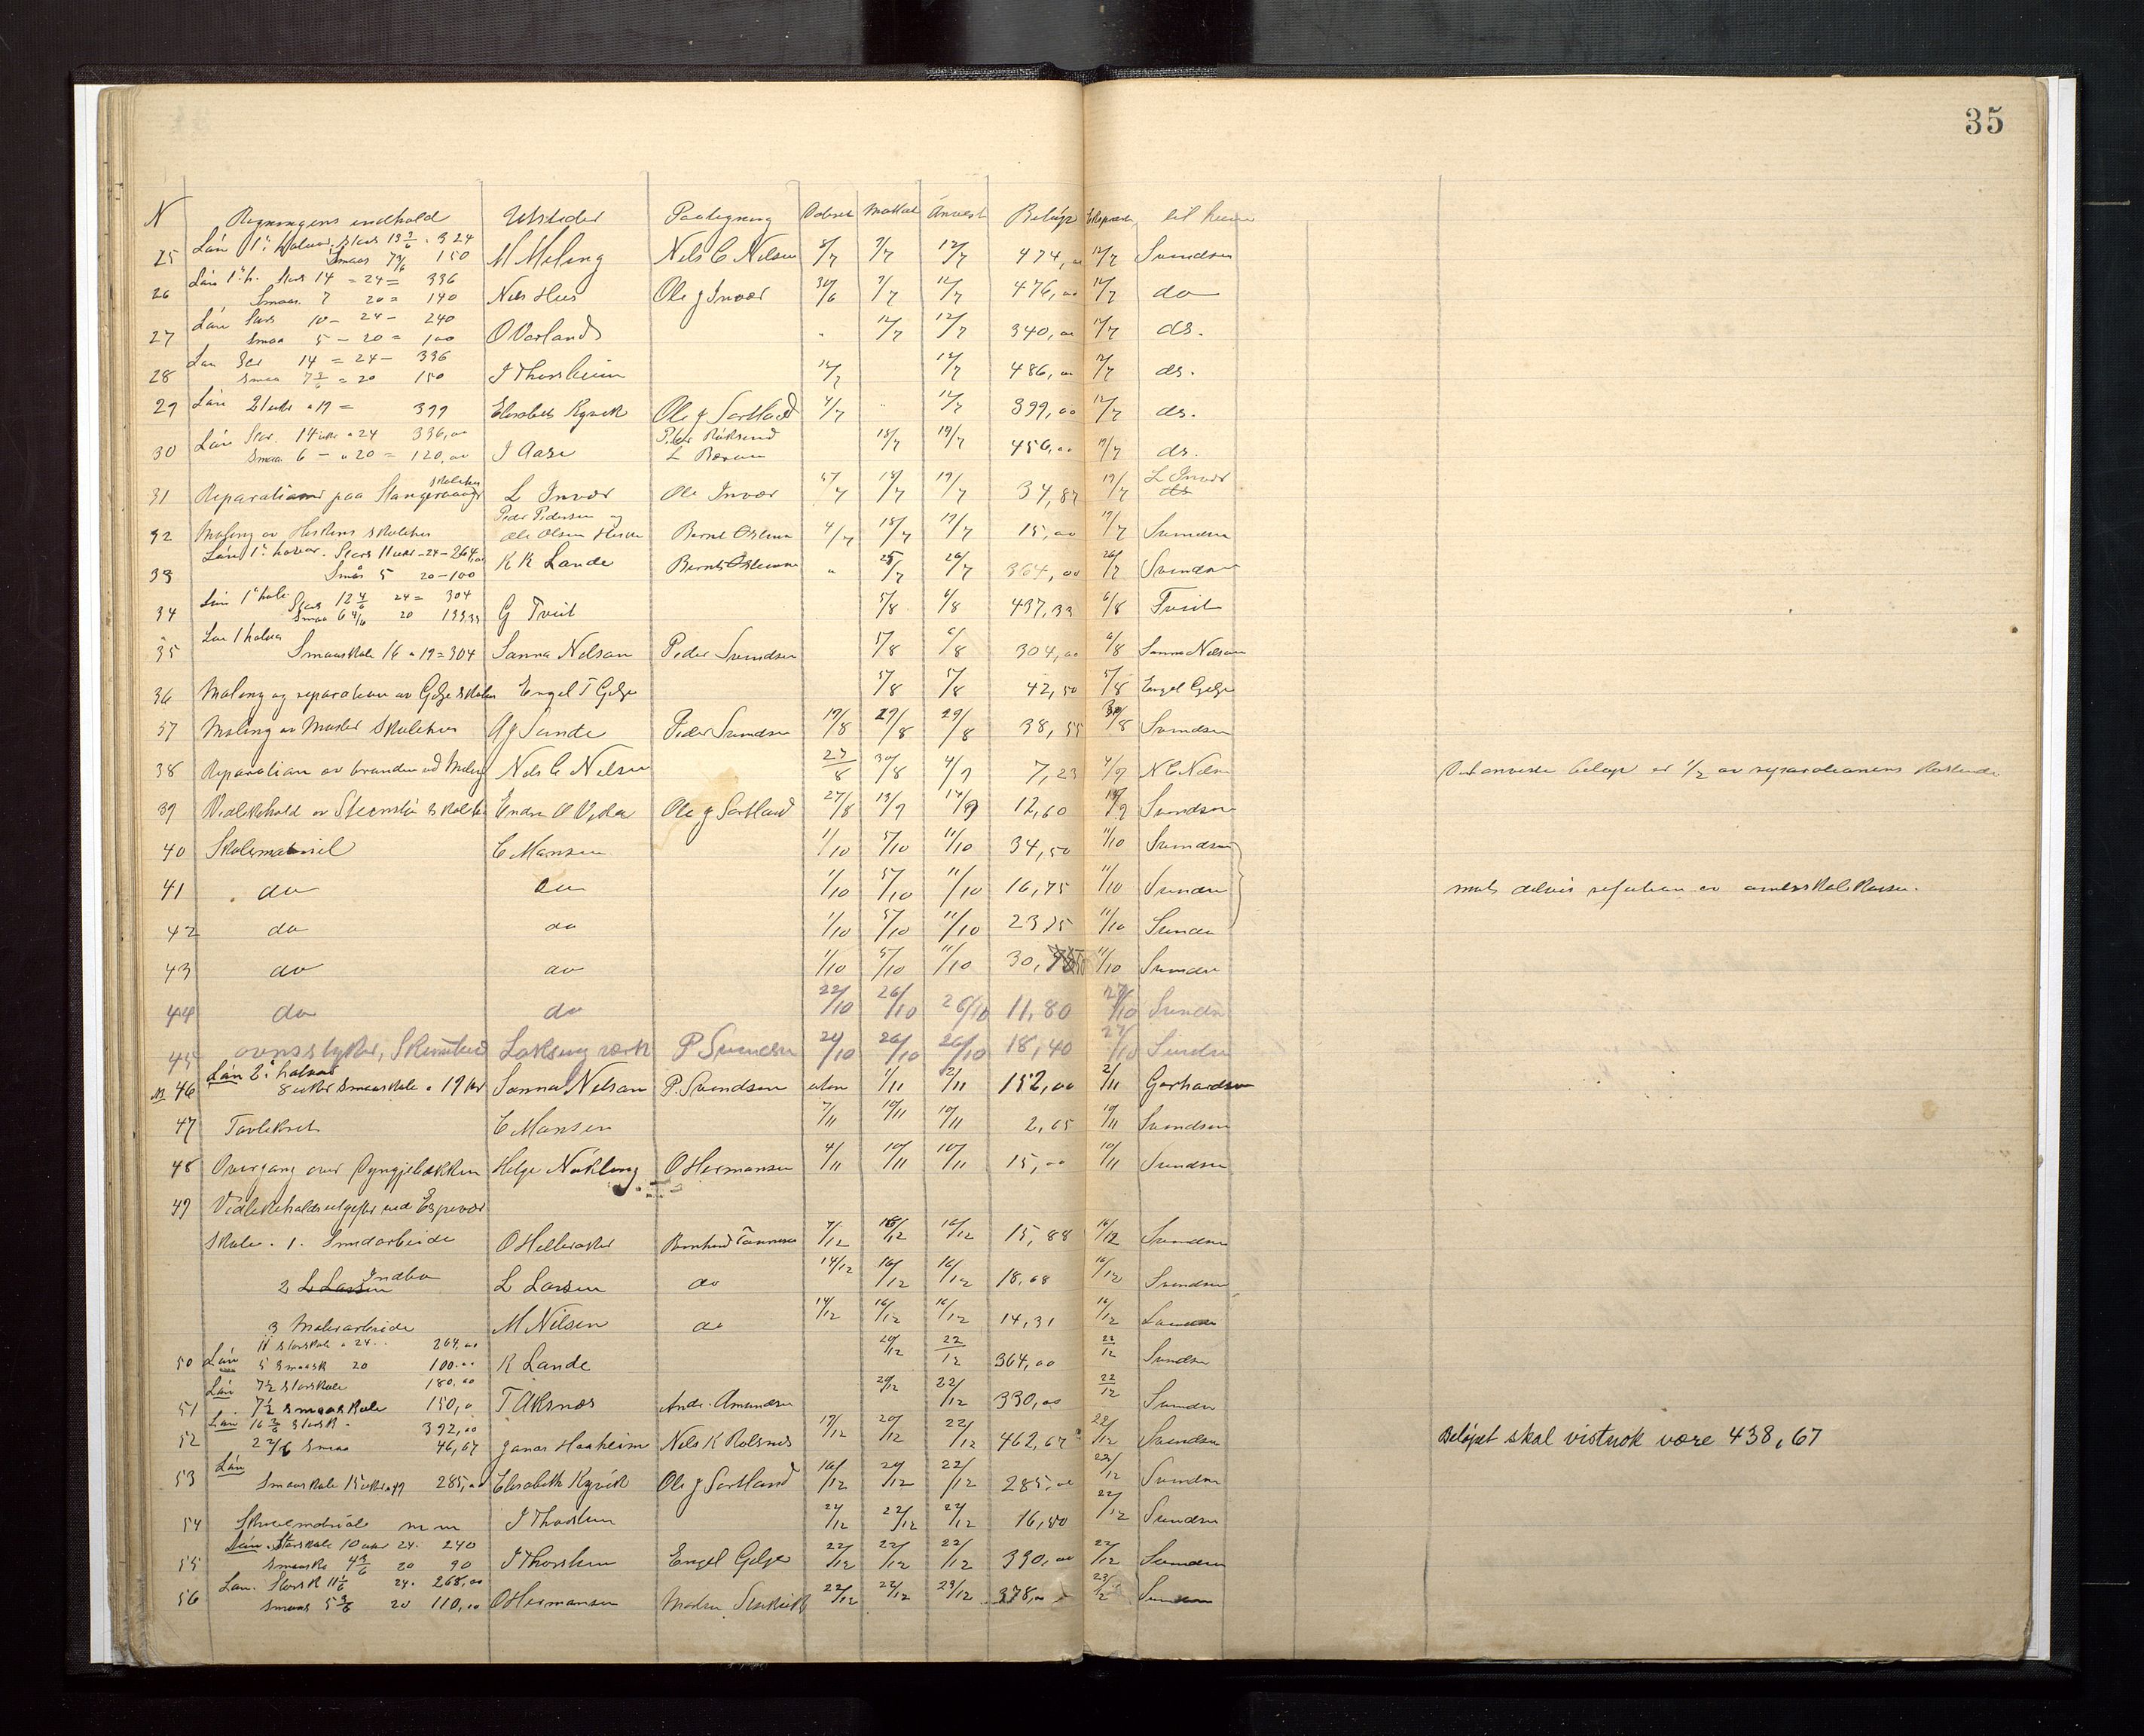 35
N Regningens indhold Utsteder Paategning Dateret Mottat Anvist Beløp Ekspedert til hvem
25 Løn 1ste halvaar. Stors 13 3/6 . 324
Smaas 7 3/6 150 M Meling Nels C Nelsen 8/7 9/7 12/7 474, 12/7 Svendsen
26 Løn 1ste h. Stors 14 = 24 = 336
Smaas. 7 20 = 140 Nels Hus Ole J Invær 30/6 9/7 12/7 476,00 12/7 do
27 Løn Stors 10 - 24 - 240
Smaa 5 - 20 = 100 O Vorland " 12/7 12/7 340,00 12/7 do.
28 Løn Stor 14 = 24 - 336
Smaa 7 3/6 = 20 150 I Thorsheim 12/7 12/7 486,00 12/7 do.
29 Løn 21 uker a 19 = 399 Elisabeth Kyvik Ole J Sortland 4/7 " 12/7 399,00 12/7 do.
30 Løn Stor. 14 uker a 24 336,00
Smaa 6 - a 20 = 120,00 I Aase 18/7 19/7 456,00 19/7 do.
31 Reparationer paa Stangervaag skolehus L Invær Ole Invær 5/7 18/7 19/7 34,87 19/7 L Invær
32 Maling av Hiskens skolehus Peder Pedersen og
Ole Olsen 4/7 18/7 19/7 15,00 19/7 Svendsen
33 Løn 1ste halvaar. Stors 11 uker - 24 - 264,00
Smås 5 20 - 100 K K Lande " 25/7 26/7 364,00 26/7 Svendsen
34 Løn 1ste halv. Stors 12 4/6 24 = 304
Smaa 6 4/6 20 133,33 G Tveit 5/8 6/8 437,33 6/8 Tveit
35 Løn 1 halvaar
Smaaskole 16 a 19 = 304 Sanna Nelsen Peder Svendsen 5/8 6/8 304,00 6/8 Sanna Nelsen
36 Maling og reparation av Geljje skolehus Engel T Gelje 5/8 5/8 42,50 5/8 Engel Gelje
37 Maling av Moster skolehus A J Sande Peder Svendsen 19/8 29/8 29/8 38,55 30/8 Svendsen
38 Reparation av brønden ved Meling Nels C Nelsen 27/8 30/8 4/9 7,23 4/9 N C Nelsen Det anviste beløp er 1/2 av reparationens kostende
39 Vedlikehold av Steensbø skolehus Endre O Vika Ole J Sortland 27/8 13/9 14/9 12,60 14/9 Svendsen
40 Skolemateriel C Monsen 1/10 5/10 11/10 34,50 11/10 Svendsen
41 do do 1/10 5/10 11/10 16,75 11/10 Svendsen mots delvis refution av amtsskolekassen.
42 do do 1/10 5/10 11/10 23,75 11/10 Svendsen
43 do do 1/10 5/10 11/10 30, 11/10 Svendsen
44 do do 22/10 26/10 26/10 11,80 27/10 Svendsen
45 ovnsstykker, P Svendsen 24/10 26/10 26/10 18,40 27/10 Svendsen
No 46 Løn 2. halvaar
8 uker smaaskole a 19 kr Sanna Nelsen P. Svendsen uten 1/11 2/11 152,00 2/11 Gerhardsen
47 Tavlekrit C Monsen 7/11 10/11 10/11 2,65 10/11 Svendsen
48 Overgang over Dyngjebekken Helge Nøkling O Hermansen 4/11 10/11 10/11 15,00 10/11 Svendsen
49 Vedlikeholdsutgifter ved Espevær
skole. 1. Smedarbeide O Helleraker 7/12 16/12 16/12 15,88 16/12 Svendsen
2 L Larsen Indbo L Larsen do 14/12 16/12 16/12 18,68 16/12 Svendsen
3 Malerarbeide M Nilsen do 14/12 16/12 16/12 14,31 16/12
50 Løn 11 storskole a 24 . . 264,00
5 smaask 20 100.00 K Lande 20/12 22/12 364,00 22/12 Svendsen
51 Løn 7 1/2 storskole 180,00
7 1/2 smaaskole 150,0 T Aksnes Andr. Amundsen 20/12 22/12 330,00 22/12 Svendsen
52 Løn 16 2/6 storsk - 392,00
2 2/6 smaa 46,67 Jonas Haaheim Nils K Rolsnes 17/12 20/12 22/12 462,67 22/12 Svendsen Beløpet skal vistnok være 438,67
53 Løn
Smaaskole 15 uker a 19 285,00 Elisabeth Kyvik Ole J Sortland 16/12 20/12 22/12 285,00 22/12 Svendsen
54 Skolemateriale m m I Thorsheim 22/12 22/12 22/12 16,80 22/12 Svendsen
55 Løn. Storskole 10 uker 24. 240
Smaasko 4 3/6 20 90 I Thorsheim Engel Gelje 22/12 22/12 22/12 330,00 22/12 Svendsen
56 Løn. Storsk 11 1/6 24. 268,00
Smaas 5 3/6 20 110,00 O Hermansen 22/12 22/12 23/12 378,00 23/12 Svendsen